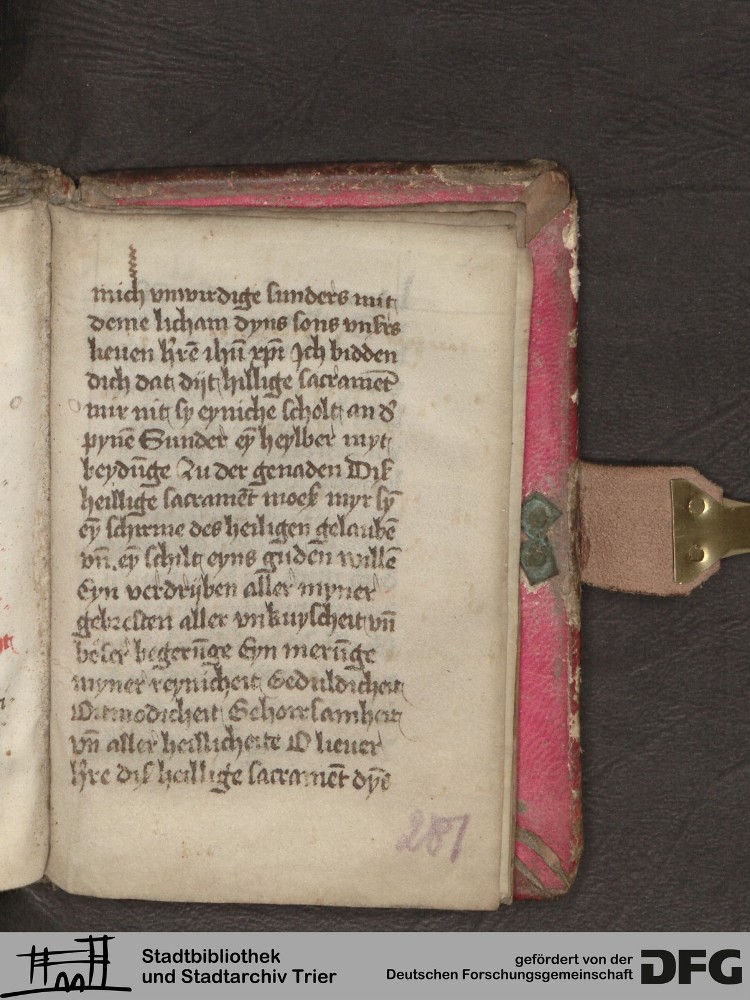 mich vnwirdige sunders mit
deme licham dyns sons vnſrs
lieuen hr̄e ihū xp̄i Jch bidden
dich dat dijt hillige sacramēt
mir nit sy eyniche scholt an d'
pynē Sunder eȳ heylber myt
beydūge Zu der genaden Diſ
heillige sacramēt moeſ myr sȳ
eȳ schirme des heiligen gelaubē
vn̄. eȳ schilt eyns gudēn willē
Eyn verdrijben aller myner
gebresten aller vnkuyscheit vn̄
beser begerūge Eyn merūge
myner reynicheit Geduldicheit
Oitmodicheit Gehoirsamheit
vn̄ aller heillicheite O lieuer
hr̄e diſ heillige sacramēt dyē
287
Stadtbibliothek
und Stadtarchiv Trier
gefördert von der
Deutschen Forschungsgemeinschaft
DFG